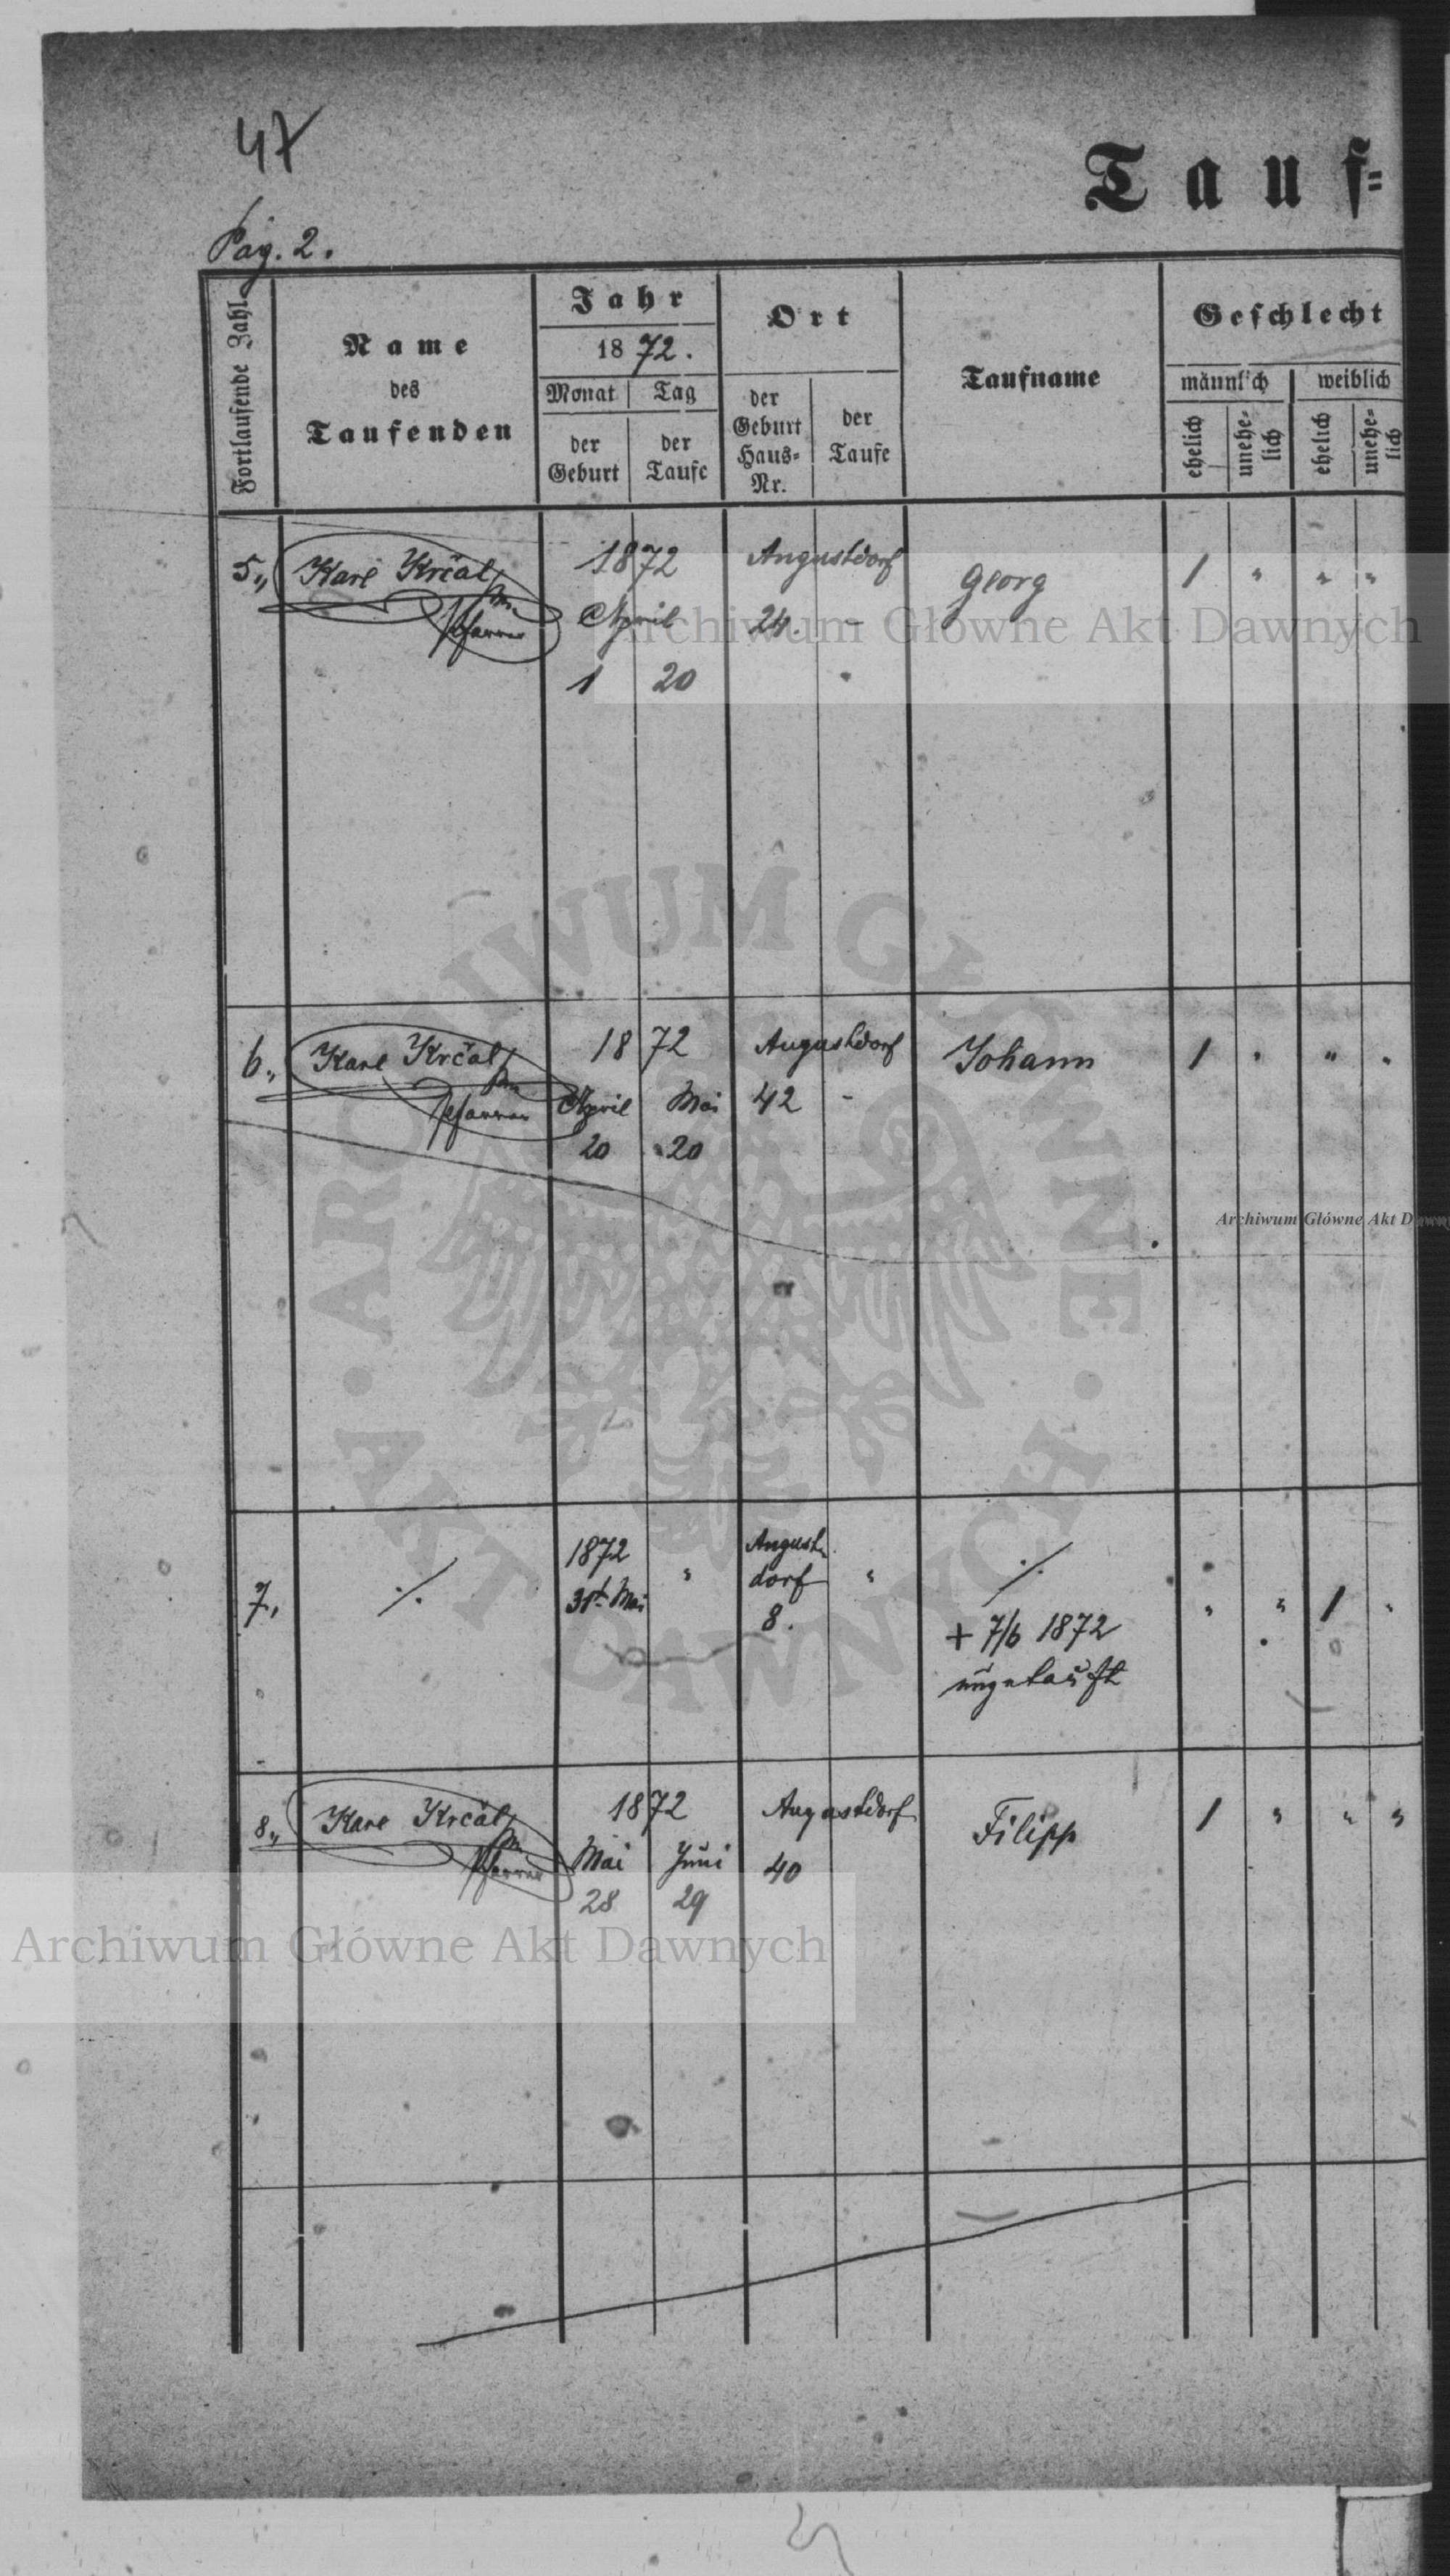 47
Tauf=
Pag. 2.
Fortlaufende Zahl
Name
des
Taufenden
Jahr
1872.
Monat Tag
der Geburt
der Taufe
Ort
der
Geburt
Haus=
Nr.
der
Taufe
Taufname
Geschlecht
männlich weiblich
ehelich
unehe=
lich
ehelich
unehe=
lich
5,, Karl Krčal 1872 Augustdorf Georg 1 " " "
Pfarrer April 24. -
1 20
6,, Karl Krčal 1872 Augustdorf Johann 1 " " "
Pfarrer April Mai 42 -
20 20
7, ./. 1872 " August=
31t. Mai dorf " ./. " " 1 "
8.
+ 7/6 1872
ungetauft
8,, Karl Krčal 1872 Augustdorf Filipp 1 " " "
Pfarrer Mai Juni 40
28 29
Archiwum Główne Akt Dawnych
ARCHIWUM GŁÓWNE · AKT DAWNYCH ·
Archiwum Główne Akt Dawny
Archiwum Główne Akt Dawnych